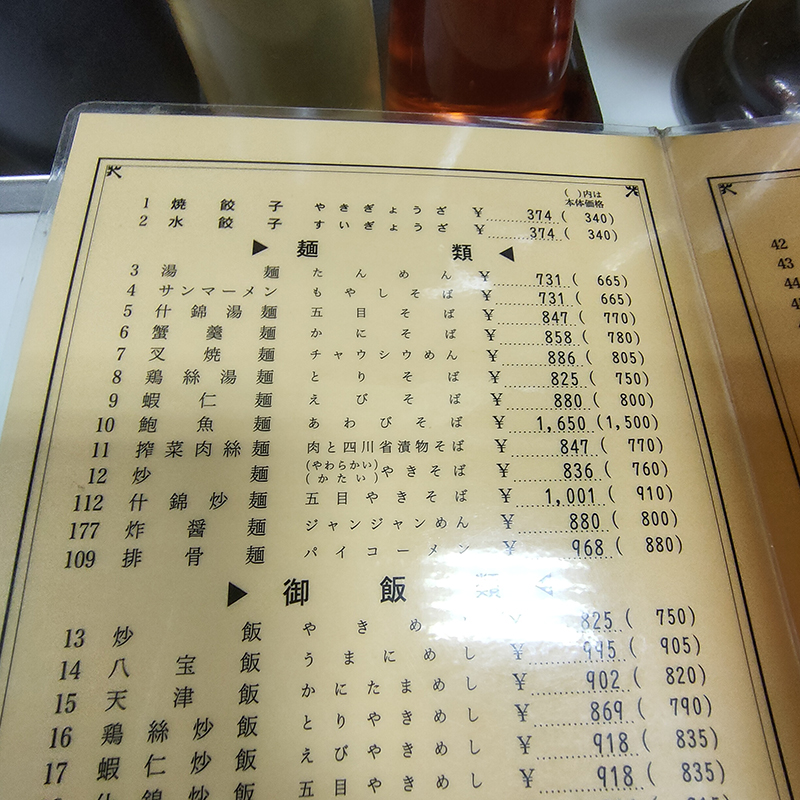 ( )内は
本体価格
1 焼餃子 やきぎょうざ ¥ 374 ( 340)
2 水餃子 すいぎょうざ ¥ 374 ( 340)
▶ 麺類 ◀
3 湯麺 たんめん ¥ 731 ( 665)
4 サンマーメン もやしそば ¥ 731 ( 665)
5 什錦湯麺 五目そば ¥ 847 ( 770)
6 蟹羹麺 かにそば ¥ 858 ( 780)
7 叉焼麺 チャウシウめん ¥ 886 ( 805)
8 鶏絲湯麺 とりそば ¥ 825 ( 750)
9 蝦仁麺 えびそば ¥ 880 ( 800)
10 鮑魚麺 あわびそば ¥ 1,650 (1,500)
11 搾菜肉絲麺 肉と四川省漬物そば ¥ 847 ( 770)
12 炒麺 (やわらかい)(かたい)やきそば ¥ 836 ( 760)
112 什錦炒麺 五目やきそば ¥ 1,001 ( 910)
177 炸醤麺 ジャンジャンめん ¥ 880 ( 800)
109 排骨麺 パイコーメン ¥ 968 ( 880)
▶ 御飯類 ◀
13 炒飯 やきめし ¥ 825 ( 750)
14 八宝飯 うまにめし ¥ 995 ( 905)
15 天津飯 かにたまめし ¥ 902 ( 820)
16 鶏絲炒飯 とりやきめし ¥ 869 ( 790)
17 蝦仁炒飯 えびやきめし ¥ 918 ( 835)
什錦炒飯 五目やきめし ¥ 918 ( 835)
42
43
44